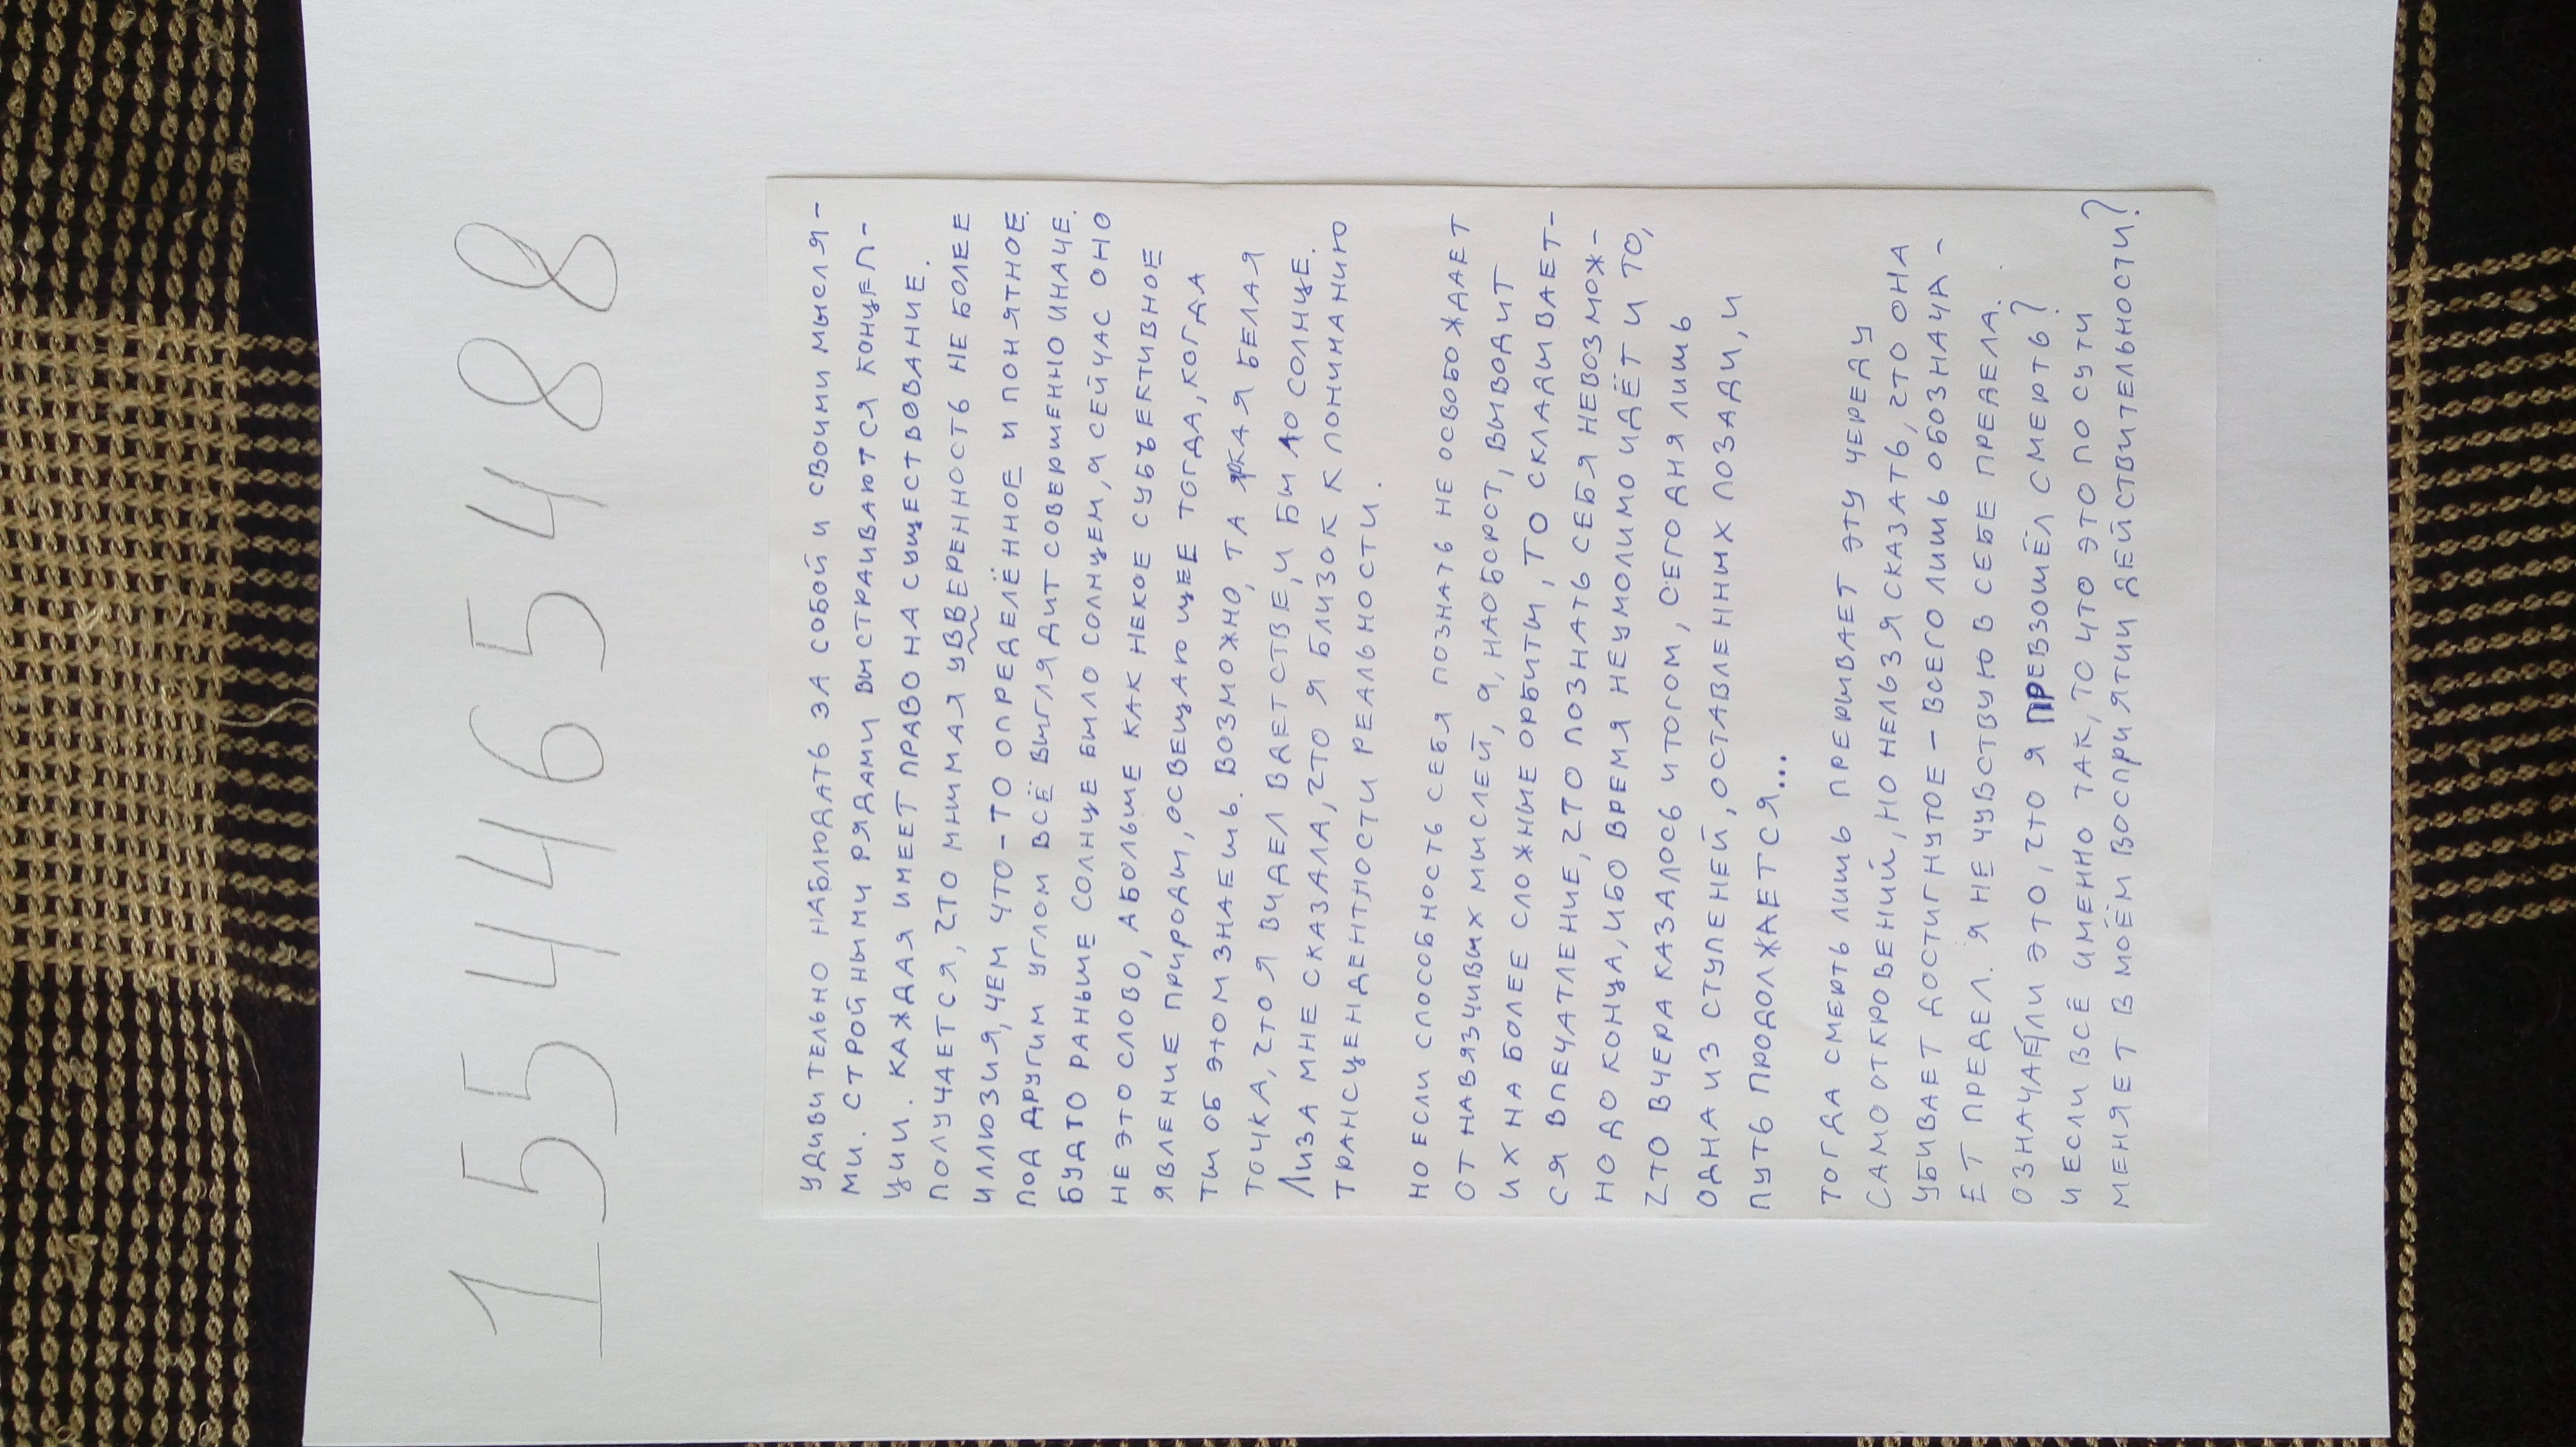 15546548 8
УДИВИТЕЛЬНО НАБЛЮДАТЬ ЗА СОБОЙ И СВОИМИ МЫСЛЯ-
МИ. СТРОЙНЫМИ РЯДАМИ ВЫСТРАИВАЮТСЯ КОНЦЕП-
ЦИИ. КАЖДАЯ ИМЕЕТ ПРАВО НА СУЩЕСТВОВАНИЕ.
ПОЛУЧАЕТСЯ, ЧТО МНИМАЯ УВВЕРЕННОСТЬ НЕ БОЛЕЕ
ИЛЛЮЗИЯ, ЧЕМ ЧТО-ТО ОПРЕДЕЛЁННОЕ И ПОНЯТНОЕ.
ПОД ДРУГИМ УГЛОМ ВСЁ ВЫГЛЯДИТ СОВЕРШЕННО ИНАЧЕ.
БУДТО РАНЬШЕ СОЛНЦЕ БЫЛО СОЛНЦЕМ, А СЕЙЧАС ОНО
НЕ ЭТО СЛОВО, А БОЛЬШЕ КАК НЕКОЕ СУБЪЕКТИВНОЕ
ЯВЛЕНИЕ ПРИРОДЫ, ОСВЕЩАЮЩЕЕ ТОГДА, КОГДА
ТЫ ОБ ЭТОМ ЗНАЕШЬ. ВОЗМОЖНО, ТА ЯРКАЯ БЕЛАЯ
ТОЧКА, ЧТО Я ВИДЕЛ В ДЕТСТВЕ, И БЫЛО СОЛНЦЕ.
ЛИЗА МНЕ СКАЗАЛА, ЧТО Я БЛИЗОК К ПОНИМАНИЮ
ТРАНСЦЕНДЕНТНОСТИ РЕАЛЬНОСТИ.
НО ЕСЛИ СПОСОБНОСТЬ СЕБЯ ПОЗНАТЬ НЕ ОСВОБОЖДАЕТ
ОТ НАВЯЗЧИВЫХ МЫСЛЕЙ, А, НАОБОРОТ, ВЫВОДИТ
ИХ НА БОЛЕЕ СЛОЖНЫЕ ОРБИТЫ, ТО СКЛАДЫВАЕТ-
СЯ ВПЕЧАТЛЕНИЕ, ЧТО ПОЗНАТЬ СЕБЯ НЕВОЗМОЖ-
НО ДО КОНЦА, ИБО ВРЕМЯ НЕУМОЛИМО ИДЁТ И ТО,
ЧТО ВЧЕРА КАЗАЛОСЬ ИТОГОМ, СЕГОДНЯ ЛИШЬ
ОДНА ИЗ СТУПЕНЕЙ, ОСТАВЛЕННЫХ ПОЗАДИ, И
ПУТЬ ПРОДОЛЖАЕТСЯ...
ТОГДА СМЕРТЬ ЛИШЬ ПРЕРЫВАЕТ ЭТУ ЧЕРЕДУ
САМООТКРОВЕНИЙ, НО НЕЛЬЗЯ СКАЗАТЬ, ЧТО ОНА
УБИВАЕТ ДОСТИГНУТОЕ - ВСЕГО ЛИШЬ ОБОЗНАЧА-
ЕТ ПРЕДЕЛ. Я НЕ ЧУВСТВУЮ В СЕБЕ ПРЕДЕЛА.
ОЗНАЧАЕТ ЛИ ЭТО, ЧТО Я ПРЕВЗОШЁЛ СМЕРТЬ?
И ЕСЛИ ВСЁ ИМЕННО ТАК, ТО ЧТО ЭТО ПО СУТИ
МЕНЯЕТ В МОЁМ ВОСПРИЯТИИ ДЕЙСТВИТЕЛЬНОСТИ?